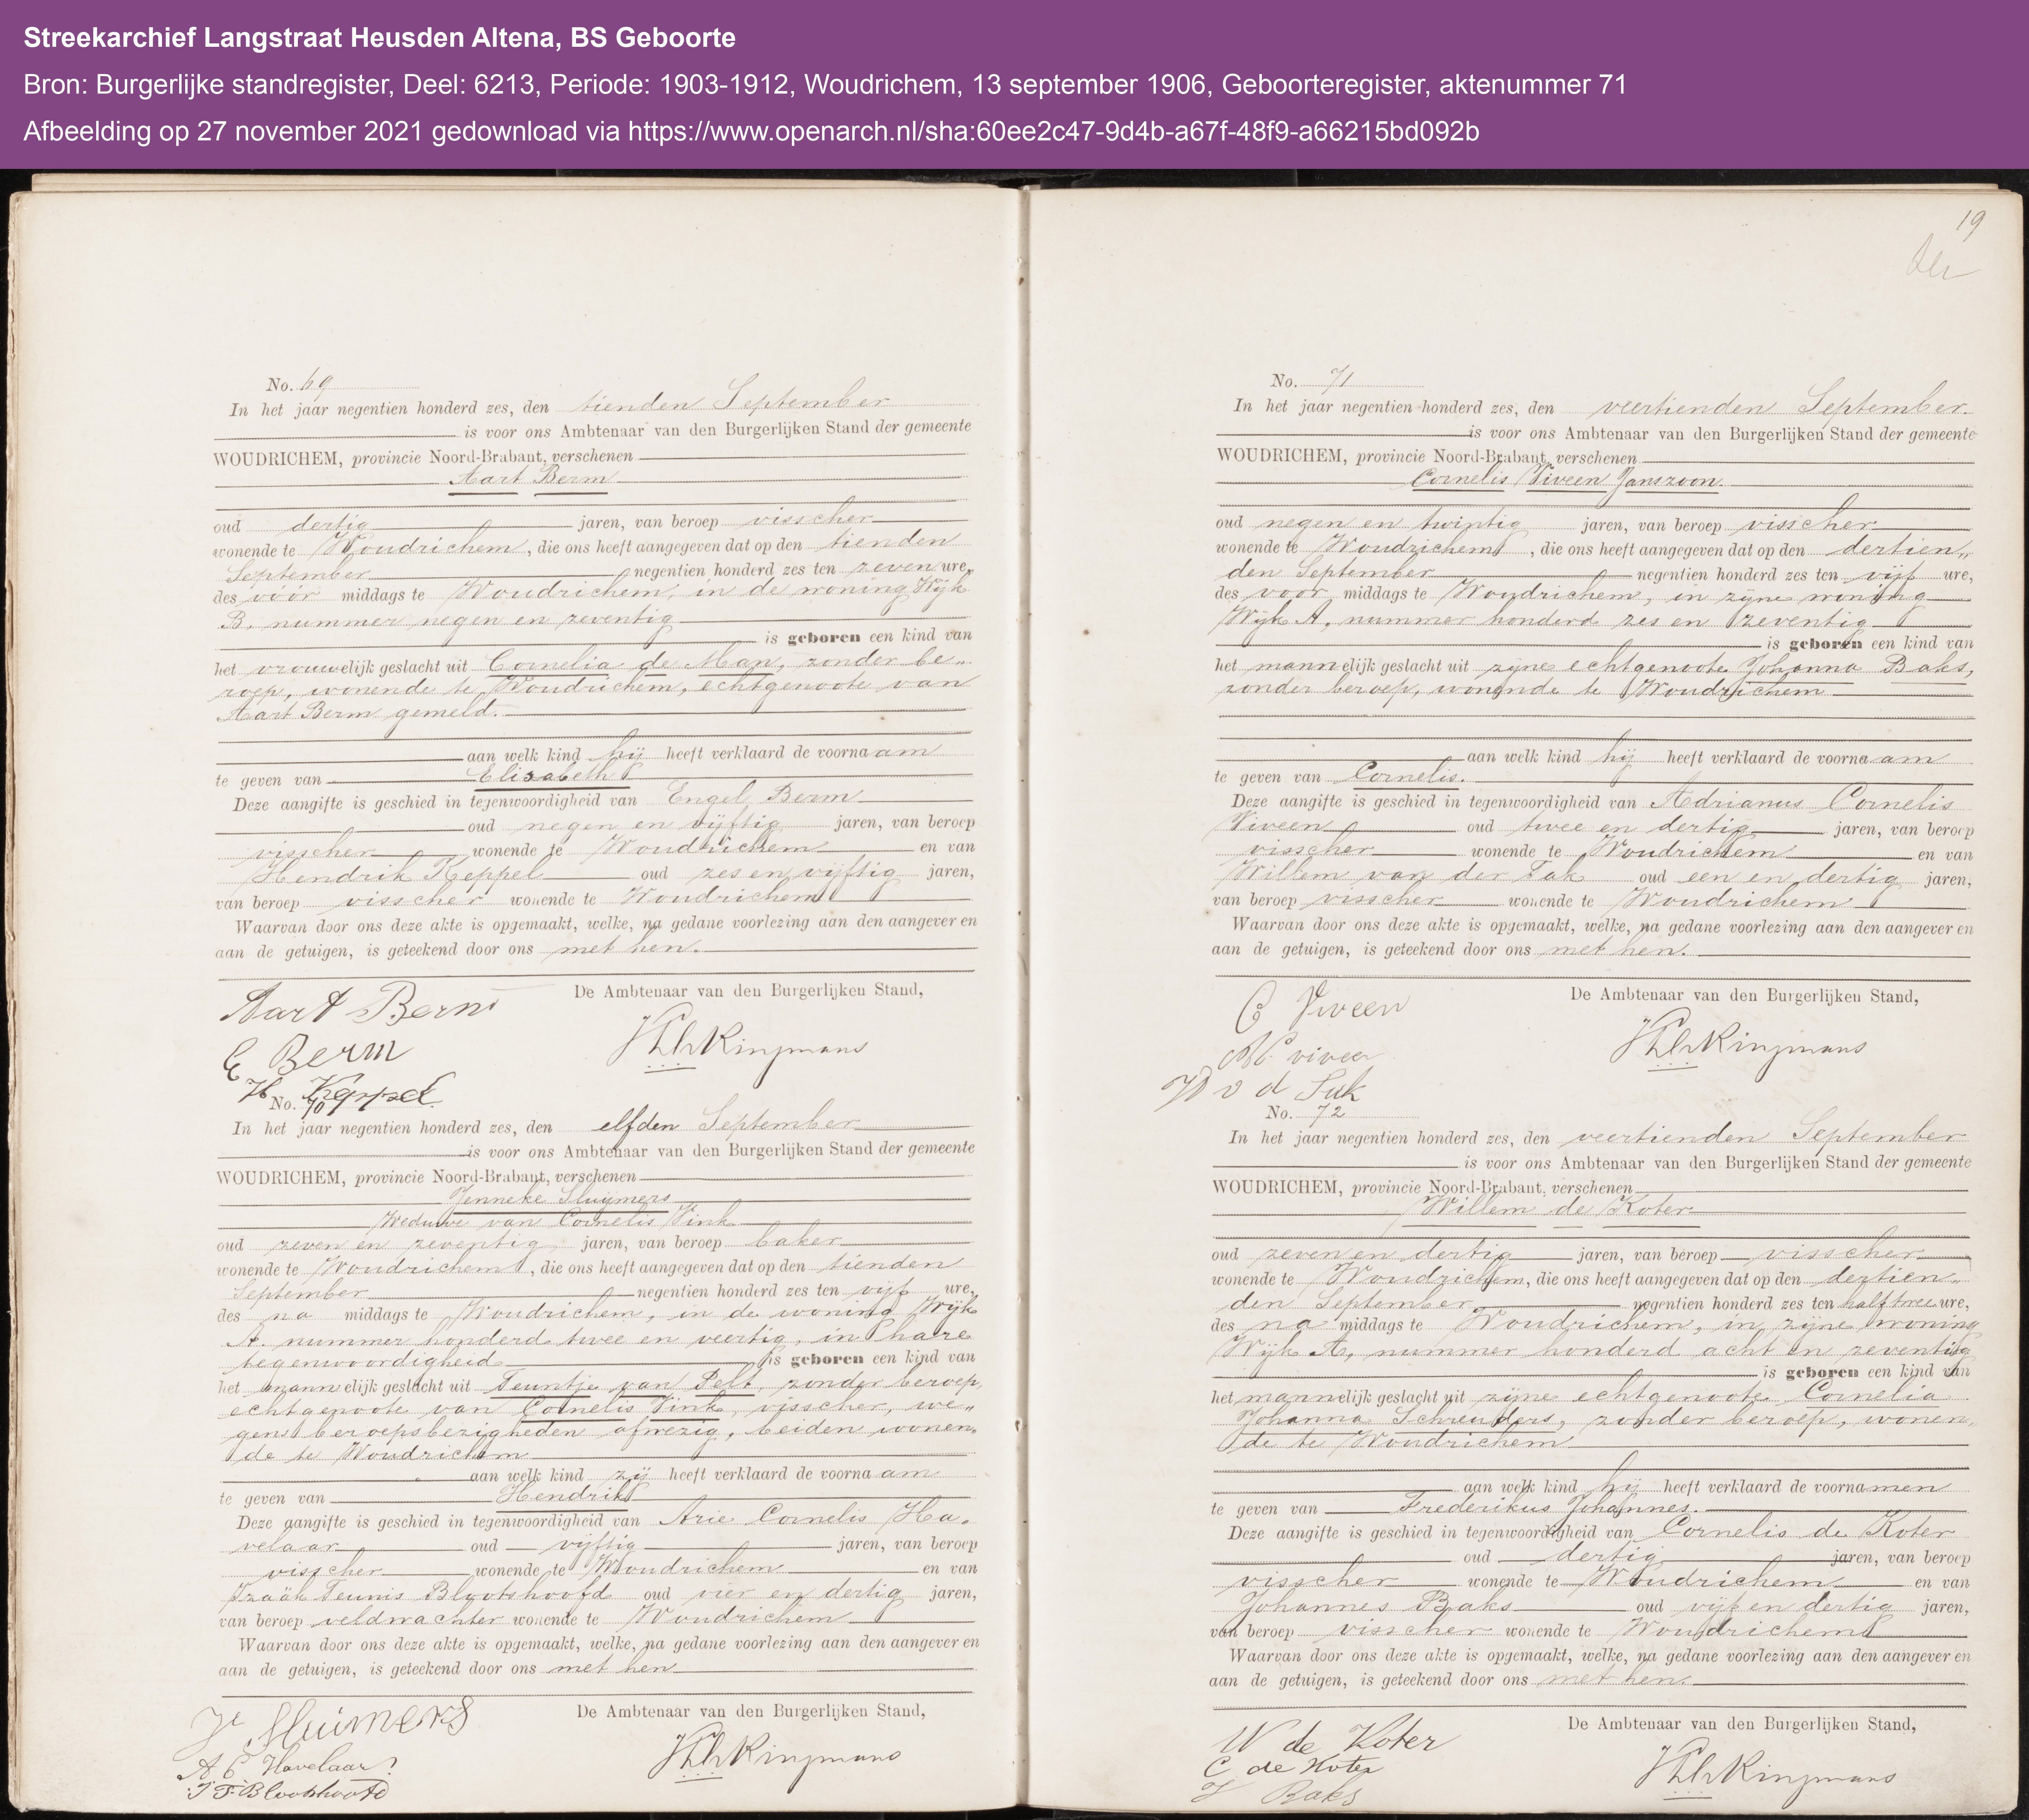 Streekarchief Langstraat Heusden Altena, BS Geboorte
Bron: Burgerlijke standregister, Deel: 6213, Periode: 1903-1912, Woudrichem, 13 september 1906, Geboorteregister, aktenummer 71
Afbeelding op 27 november 2021 gedownload via https://www.openarch.nl/sha:60ee2c47-9d4b-a67f-48f9-a66215bd092b
No. 69
In het jaar negentien honderd zes, den tienden September
is voor ons Ambtenaar van den Burgerlijken Stand der gemeente
WOUDRICHEM, provincie Noord-Brabant, verschenen
Aart Berm
oud dertig jaren, van beroep visscher
wonende te Woudrichem, die ons heeft aangegeven dat op den tienden
September negentien honderd zes ten zeven ure,
des vóór middags te Woudrichem, in de woning Wijk
B, nummer negen en zeventig
is geboren een kind van
het vrouwelijk geslacht uit Cornelia de Man, zonder be„
roep, wonende te Woudrichem, echtgenoote van
Aart Berm gemeld.
aan welk kind hij heeft verklaard de voornaam
te geven van Elizabeth
Deze aangifte is geschied in tegenwoordigheid van Engel Berm
oud negen en vijftig jaren, van beroep
visscher wonende te Woudrichem en van
Hendrik Keppel oud zes en vijftig jaren,
van beroep visscher wonende te Woudrichem
Waarvan door ons deze akte is opgemaakt, welke, na gedane voorlezing aan den aangever en
aan de getuigen, is geteekend door ons met hen.
De Ambtenaar van den Burgerlijken Stand,
Aart Berm
E Berm
H Keppel
No. 70
In het jaar negentien honderd zes, den elfden September
is voor ons Ambtenaar van den Burgerlijken Stand der gemeente
WOUDRICHEM, provincie Noord-Brabant, verschenen
Jenneke Sluijmers
Weduwe van Cornelis Vink
oud zeven en zeventig jaren, van beroep baker
wonende te Woudrichem, die ons heeft aangegeven dat op den tienden
September negentien honderd zes ten vijf ure,
des na middags te Woudrichem, in de woning Wijk
A. nummer honderd twee en veertig, in hare
tegenwoordigheid is geboren een kind van
het mannelijk geslacht uit Teuntje van Pelt, zonder beroep,
echtgenoote van Cornelis Vink, visscher, we„
gens beroepsbezigheden afwezig, beiden wonen„
de te Woudrichem
aan welk kind zij heeft verklaard de voornaam
te geven van Hendrik
Deze aangifte is geschied in tegenwoordigheid van Arie Cornelis Ha„
velaar oud vijftig jaren, van beroep
visscher wonende te Woudrichem en van
Izaäk Teunis Blootshoofd oud vier en dertig jaren,
van beroep veldwachter wonende te Woudrichem
Waarvan door ons deze akte is opgemaakt, welke, na gedane voorlezing aan den aangever en
aan de getuigen, is geteekend door ons met hen
De Ambtenaar van den Burgerlijken Stand,
Sluimers
A C Havelaar
19
No. 71
In het jaar negentien honderd zes, den veertienden September.
is voor ons Ambtenaar van den Burgerlijken Stand der gemeente
WOUDRICHEM, provincie Noord-Brabant, verschenen
Cornelis Viveen Janszoon.
oud negen en twintig jaren, van beroep visscher
wonende te Woudrichem, die ons heeft aangegeven dat op den dertien„
den September negentien honderd zes ten vijf ure,
des voor middags te Woudrichem, in zijne woning
Wijk A, nummer honderd zes en zeventig
is geboren een kind van
het mannelijk geslacht uit zijne echtgenoote Johanna Baks,
zonder beroep, wonende te Woudrichem
aan welk kind hij heeft verklaard de voornaam
te geven van Cornelis.
Deze aangifte is geschied in tegenwoordigheid van Adrianus Cornelis
Viveen oud twee en dertig jaren, van beroep
visscher wonende te Woudrichem en van
Willem van der Tak oud een en dertig jaren,
van beroep visscher wonende te Woudrichem
Waarvan door ons deze akte is opgemaakt, welke, na gedane voorlezing aan den aangever en
aan de getuigen, is geteekend door ons met hen.
De Ambtenaar van den Burgerlijken Stand,
C Viveen
AC viveen
W v d Tak
No. 72
In het jaar negentien honderd zes, den veertienden September
is voor ons Ambtenaar van den Burgerlijken Stand der gemeente
WOUDRICHEM, provincie Noord-Brabant, verschenen
Willem de Koter
oud zeven en dertig jaren, van beroep visscher
wonende te Woudrichem, die ons heeft aangegeven dat op den dertien„
den September negentien honderd zes ten half twee ure,
des na middags te Woudrichem, in zijne woning
Wijk A, nummer honderd acht en zeventig
is geboren een kind van
het mannelijk geslacht uit zijne echtgenoote Cornelia
Johanna Schreuders, zonder beroep, wonen„
de te Woudrichem
aan welk kind hij heeft verklaard de voornamen
te geven van Frederikus Johannes.
Deze aangifte is geschied in tegenwoordigheid van Cornelis de Koter
oud dertig jaren, van beroep
visscher wonende te Woudrichem en van
Johannes Baks oud vijf en dertig jaren,
van beroep visscher wonende te Woudrichem
Waarvan door ons deze akte is opgemaakt, welke, na gedane voorlezing aan den aangever en
aan de getuigen, is geteekend door ons met hen.
De Ambtenaar van den Burgerlijken Stand,
W de Koter
C de Koter
J Baks